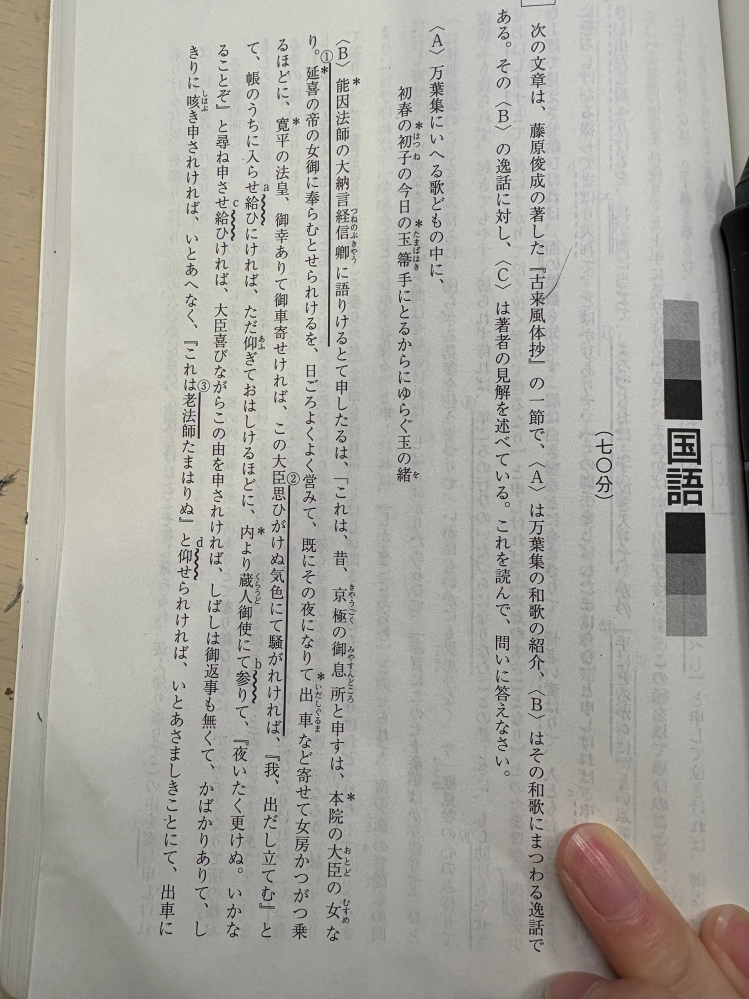 国語
(七〇分)
次の文章は、藤原俊成の著した『古来風体抄』の一節で、〈A〉は万葉集の和歌の紹介、〈B〉はその和歌にまつわる逸話で
ある。その〈B〉の逸話に対し、〈C〉は著者の見解を述べている。これを読んで、問いに答えなさい。
〈A〉万葉集にいへる歌どもの中に、
初春の*初子の今日の*玉箒手にとるからにゆらぐ玉の緒
はつね たまばはき を
〈B〉*能因法師の大納言経信卿に語りけるとて申したるは、「これは、昔、京極の御息所と申すは、*本院の大臣の女な
つねのぶきやう きやうごく みやすんどころ おとど むすめ
り。①*延喜の帝の女御に奉らむとせられけるを、日ごろよくよく営みて、既にその夜になりて*出車など寄せて女房かつがつ乗
いだしぐるま
るほどに、*寛平の法皇、御幸ありて御車寄せければ、この大臣②思ひがけぬ気色にて騒がれければ、『我、出だし立てむ』と
て、帳のうちに入らせa給ひにければ、ただ仰ぎておはしけるほどに、*内より蔵人御使にてb参りて、『夜いたく更けぬ。いかな
あふ くらうど
ることぞ』と尋ね申させc給ひければ、大臣喜びながらこの由を申されければ、しばしは御返事も無くて、かばかりありて、し
きりに咳き申されければ、いとあへなく、『これは③老法師たまはりぬ』とd仰せられければ、いとあさましきことにて、出車に
しはぶ